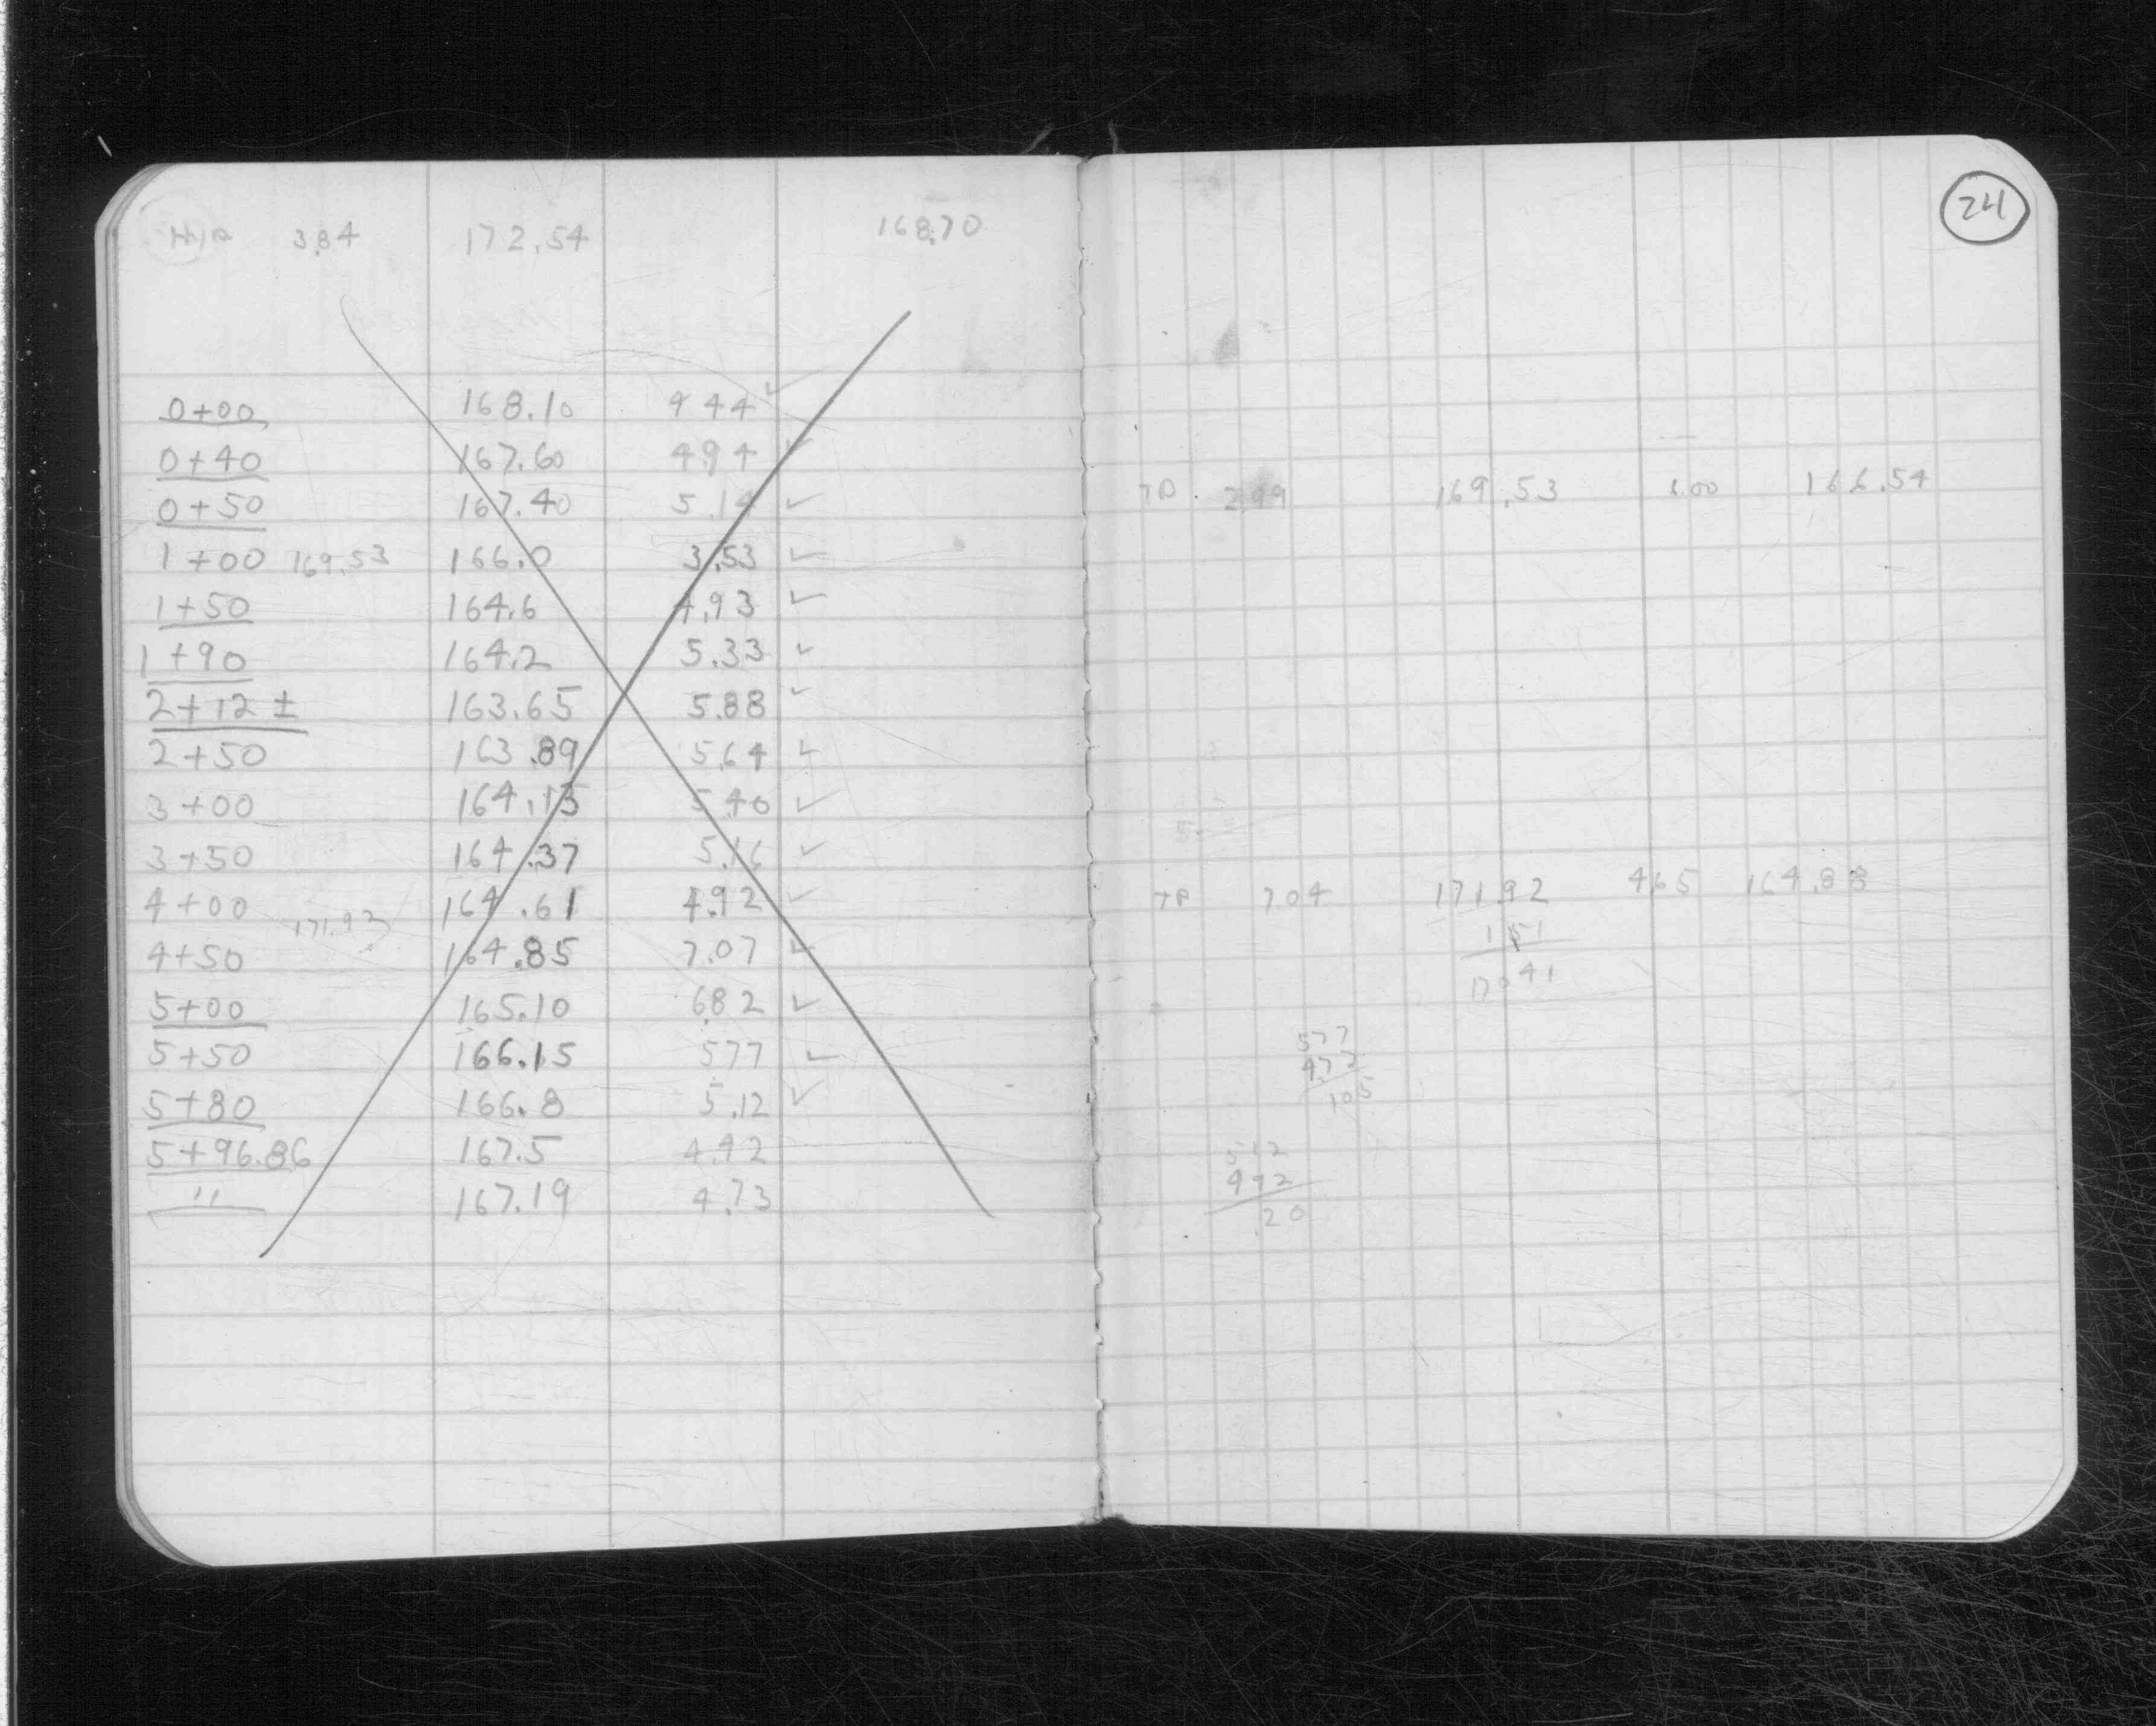 Hyd 3.84 172.54 168.70
0+00 168.10 4.44 ✓
0+40 167.60 4.94 ✓
0+50 167.40 5.14 ✓
1+00 169.53 166.0 3.53 ✓
1+50 164.6 4.93 ✓
1+90 164.2 5.33 ✓
2+12 ± 163.65 5.88 ✓
2+50 163.89 5.64 ✓
3+00 164.13 5.40 ✓
3+50 164.37 5.16 ✓
4+00 164.61 4.92 ✓
171.92
4+50 164.85 7.07 ✓
5+00 165.10 6.82 ✓
5+50 166.15 577 ✓
5+80 166.8 5.12 ✓
5+96.86 167.5 4.42
" 167.19 4.73
24
TP 2.99 169.53 6.00 166.54
TP 7.04 171.92 4.65 164.88
1 51
170 41
577
472
105
512
492
20